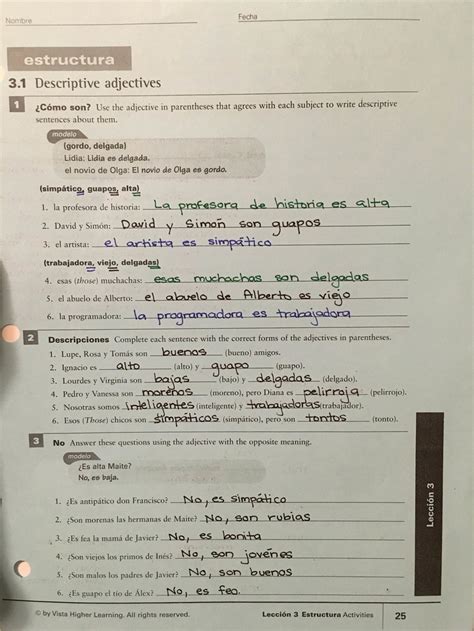 Nombre
Fecha
estructura
3.1 Descriptive adjectives
1 ¿Cómo son? Use the adjective in parentheses that agrees with each subject to write descriptive
sentences about them.
modelo
(gordo, delgada)
Lidia: Lidia es delgada.
el novio de Olga: El novio de Olga es gordo.
(simpático, guapos, alta)
1. la profesora de historia: La profesora de historia es alta
2. David y Simón: David y Simón son guapos
3. el artista: el artista es simpático
(trabajadora, viejo, delgadas)
4. esas (those) muchachas: esas muchachas son delgadas
5. el abuelo de Alberto: el abuelo de Alberto es viejo
6. la programadora: la programadora es trabajadora
2 Descripciones Complete each sentence with the correct forms of the adjectives in parentheses.
1. Lupe, Rosa y Tomás son buenos (bueno) amigos.
2. Ignacio es alto (alto) y guapo (guapo).
3. Lourdes y Virginia son bajas (bajo) y delgadas (delgado).
4. Pedro y Vanessa son morenos (moreno), pero Diana es pelirroja (pelirrojo).
5. Nosotras somos inteligentes (inteligente) y trabajadoras (trabajador).
6. Esos (Those) chicos son simpáticos (simpático), pero son tontos (tonto).
3 No Answer these questions using the adjective with the opposite meaning.
modelo
¿Es alta Maite?
No, es baja.
1. ¿Es antipático don Francisco? No, es simpático
2. ¿Son morenas las hermanas de Maite? No, son rubias
3. ¿Es fea la mamá de Javier? No, es bonita
4. ¿Son viejos los primos de Inés? No, son jovenes
5. ¿Son malos los padres de Javier? No, son buenos
6. ¿Es guapo el tío de Álex? No, es feo.
Lección 3
© by Vista Higher Learning. All rights reserved.
Lección 3 Estructura Activities
25